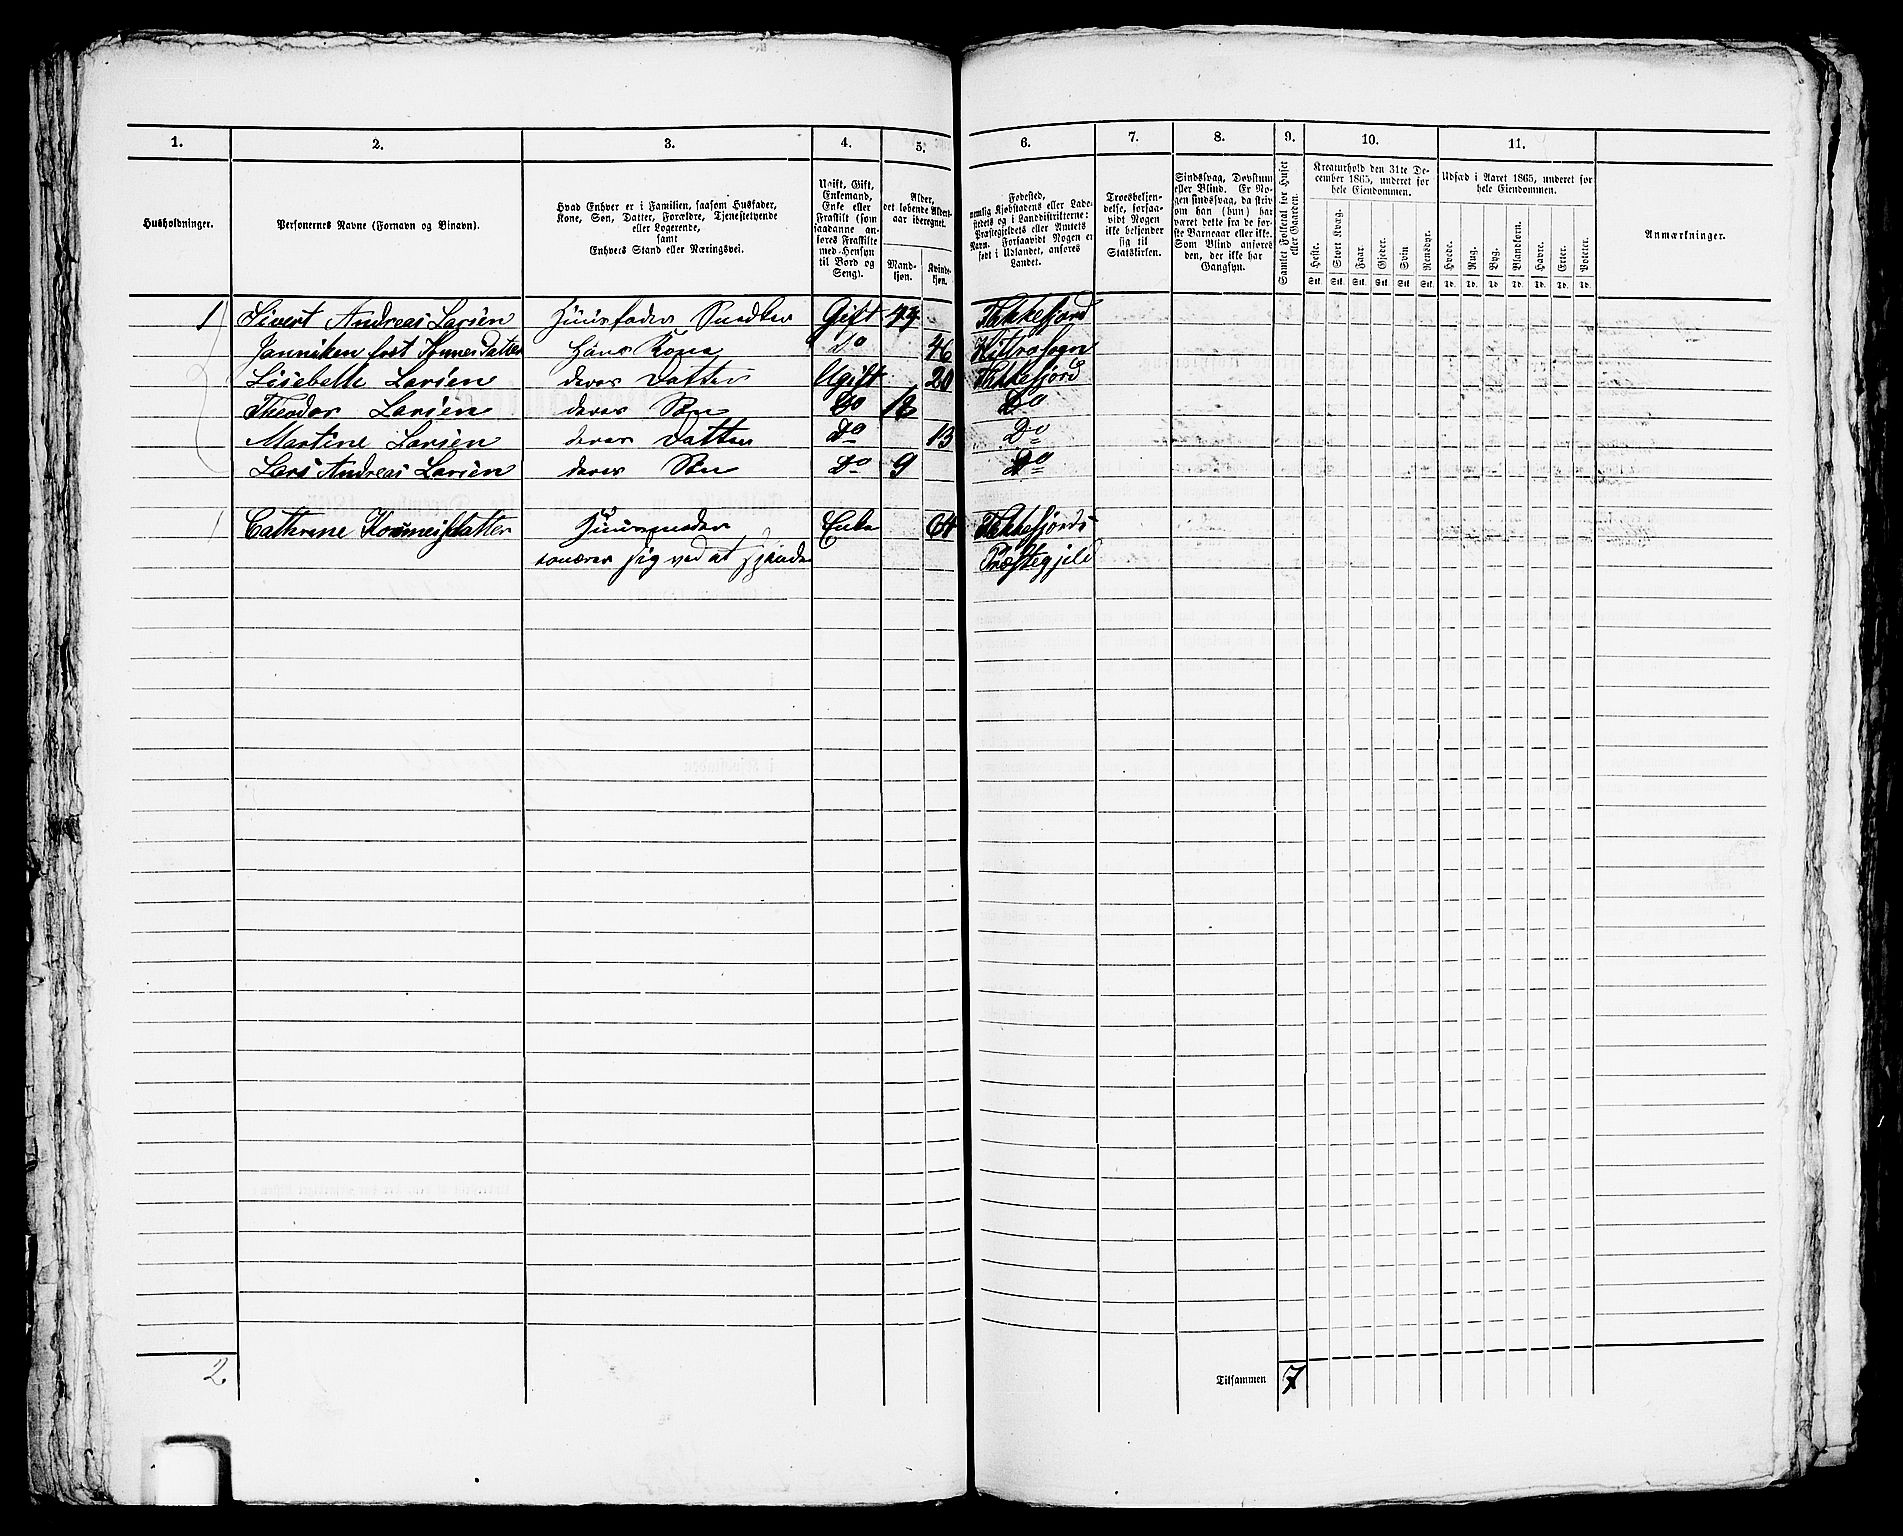 1. 2. 3. 4. 5. 6. 7. 8. 9. 10. 11.
Husholdninger.
Personernes Navne (Fornavn og Binavn).
Hvad Enhver er i Familien, saasom Husfader,
Kone, Søn, Datter, Forældre, Tjenestetyende
eller Logerende,
samt
Enhvers Stand eller Næringsvei.
Ugift, Gift,
Enkemand,
Enke eller
Fraskilt (som
saadanne an-
føres Fraskilte
med Hensyn
til Bord og
Seng).
Alder,
det løbende Alders-
aar iberegnet.
Mand-
kjøn.
Kvinde-
kjøn.
Fødested,
nemlig Kjøbstadens eller Lade-
stedets og i Landdistrikterne:
Præstegjeldets eller Amtets
Navn. Forsaavidt Nogen er
født i Udlandet, anføres
Landet.
Troesbekjen-
delse, forsaa-
vidt Nogen
ikke bekjender
sig til
Statskirken.
Sindssvag, Døvstum
eller Blind. Er No-
gen sindssvag, da skriv
om han (hun) har
været dette fra de før-
ste Barneaar eller ikke.
Som Blind anføres
den, der ikke har
Gangsyn.
Samlet Folketal for Huset
eller Gaarden.
Kreaturhold den 31te De-
cember 1865, underet for
hele Eiendommen.
Heste. Stort Kvæg. Faar. Gjeder. Svin Rensdyr.
Stk. Stk. Stk. Stk. Stk. Stk.
Udsæd i Aaret 1865, underet for
hele Eiendommen.
Hvede. Rug. Byg. Blandkorn. Havre. Erter. Poteter.
Td. Td. Td. Td. Td. Td. Td.
Anmærkninger.
1 Sivert Andreas Larsen Huusfader Snedker Gift Flekkefjord
Janniken Kone Do 46 Hittrøsogn
Lisebette Larsen deres Datter Ugift 20 Flekkefjord
Theodor Larsen deres Søn Do Do
Martine Larsen deres Datter Do 13 Do
Lars Andreas Larsen deres Søn Do 9 Do
1 Cathrine Huusmoder Enke 64 Flekkefjords
sig ved at Præstegjeld
2 Tilsammen 7